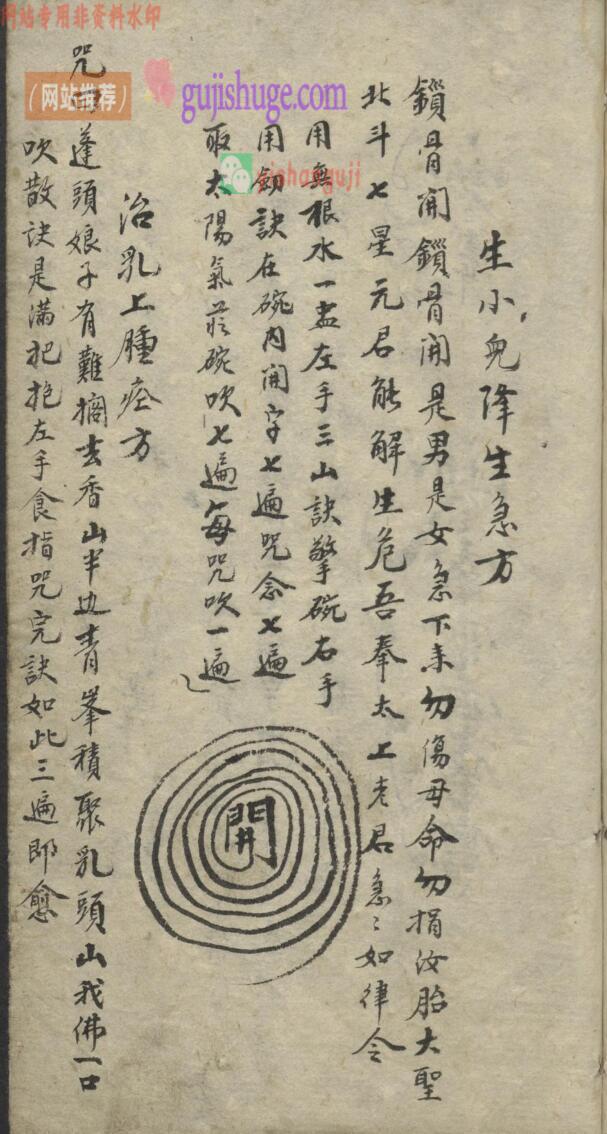 网站专用非资料水印
(网站推荐)
gujishuge.com
生小兒降生急方
鎖骨開鎖骨開是男是女急下来勿傷母命勿捐汝胎大聖
北斗七星元君能解生危吾奉太上老君急〻如律令
用無根水一盅左手三山訣擎碗右手
用劍訣在碗内開字七遍咒念七遍
取太陽氣於碗吹七遍每咒吹一遍
開
治乳上腫痊方
咒曰蓬頭娘子有難擱去香山半边青峯積聚乳頭山我佛一口
吹散訣是滿把抱左手食指咒完訣如此三遍即愈